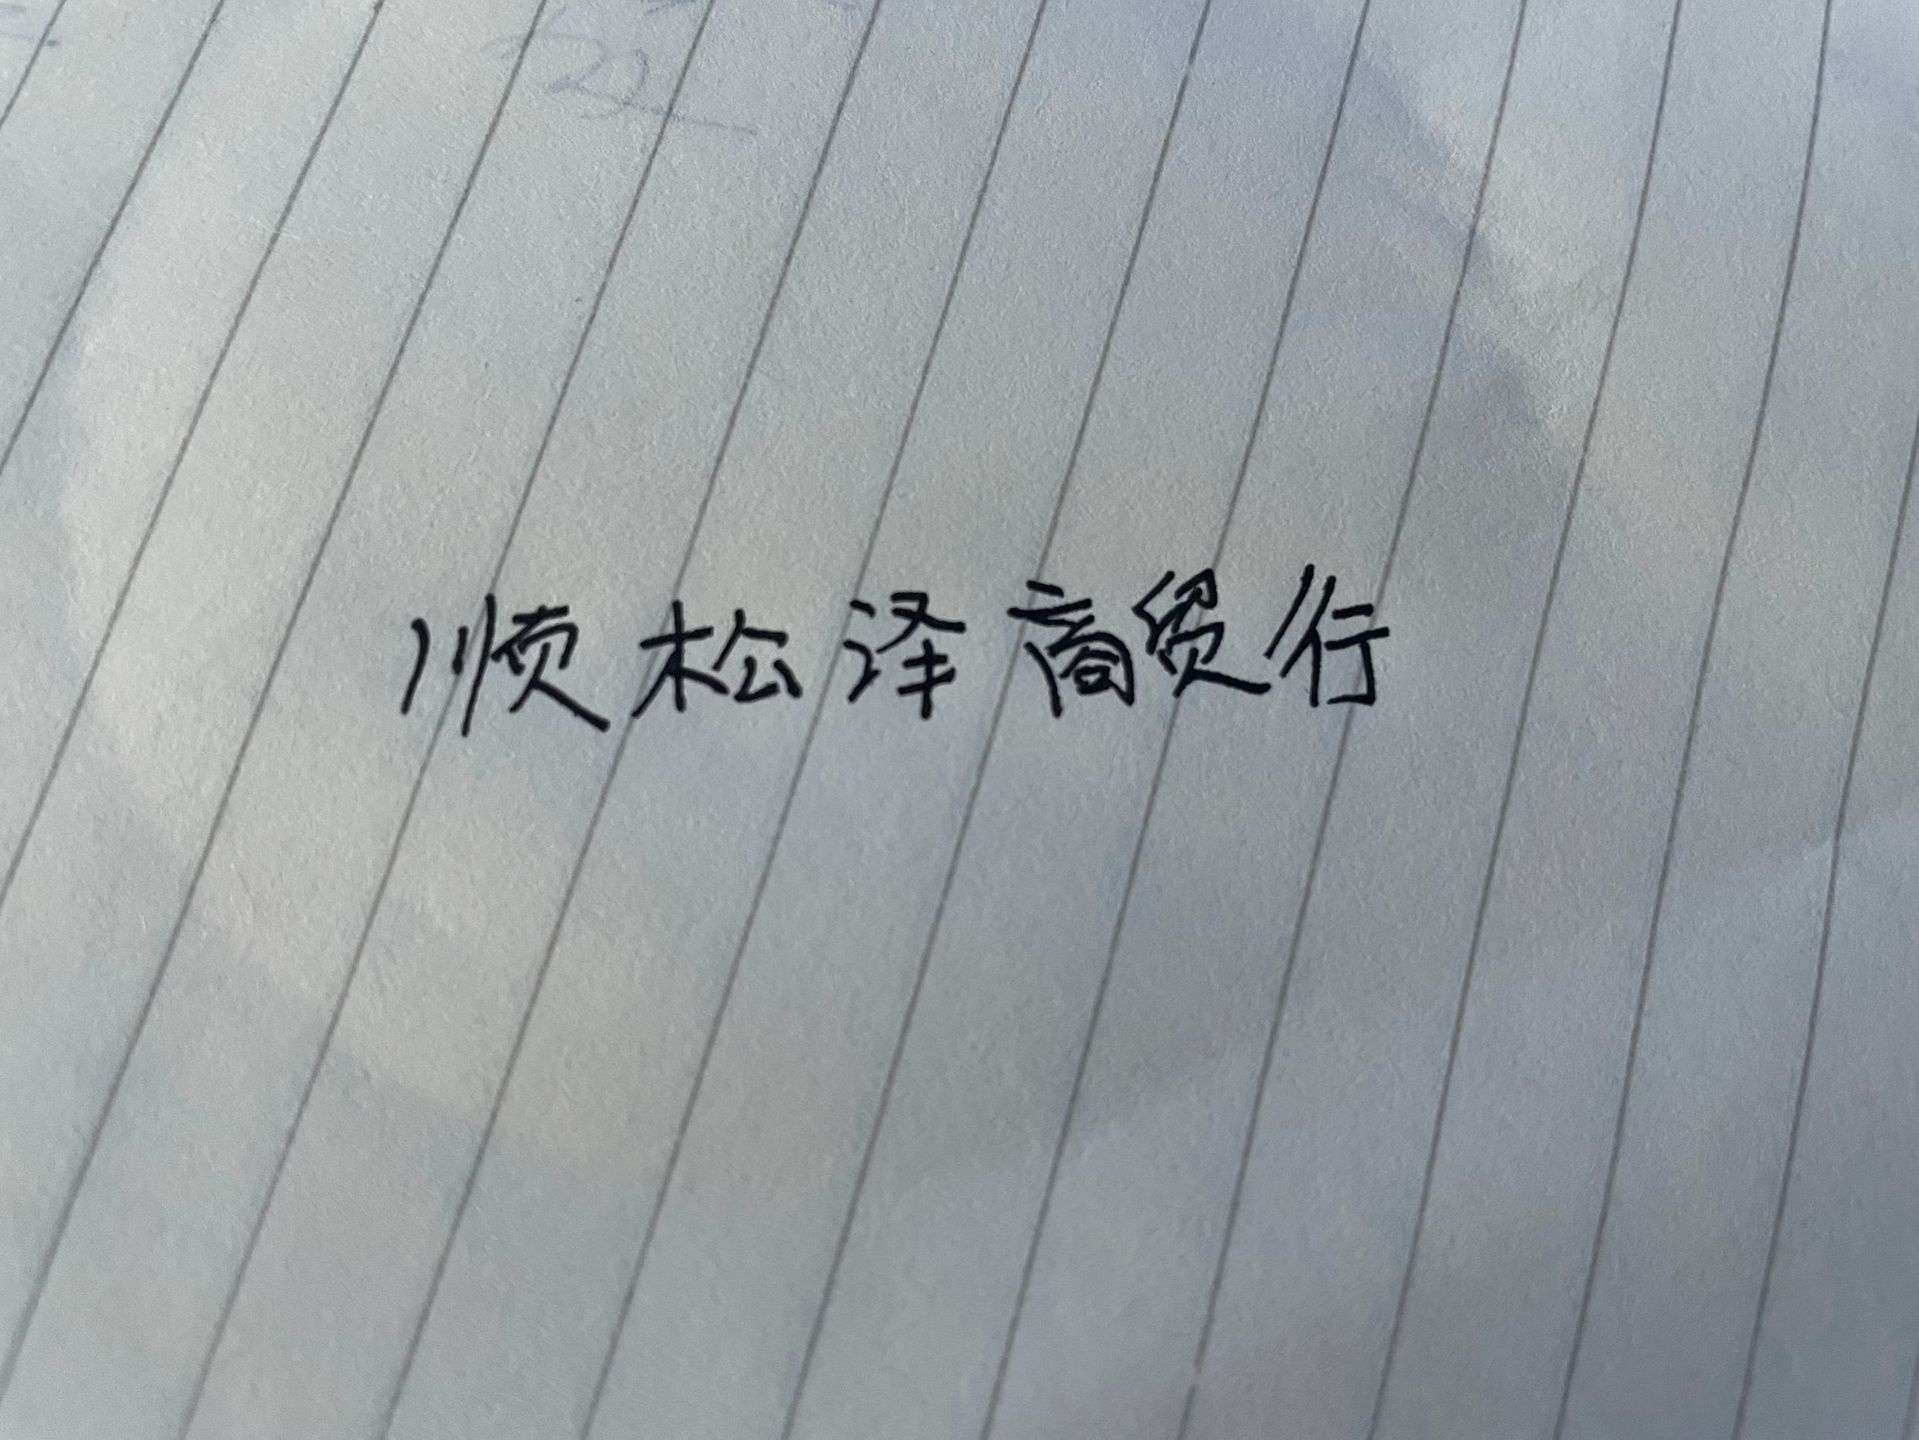 顺松泽商贸行